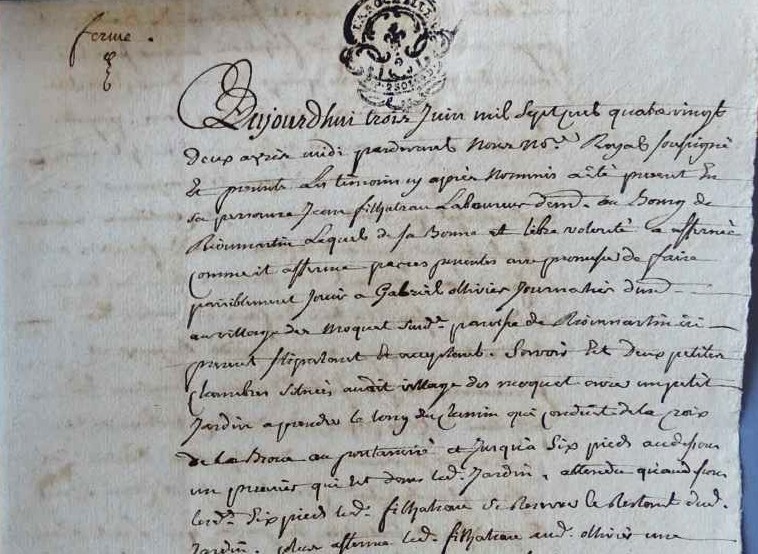 ferme .
LA ROCHELLE
2 SOLS
Aujourdhui trois Juin mil Sept cent quatre vingt
deux apres midi pardevant Nous No.re Royal soussigné
Et presents Les temoins cy apres Nommés a été present En
sa personne Jean filhatreau Laboureur dem.t au Bourg de
Lequel de sa Bonne et libre volonté a affermé
comme il afferme par ces presentes avec promesse de faire
paisiblement Jouir a Gabriel ollivier Journalier dem.t
au village des moquet susd.t paroisse de
present stipulant Et acceptant. Savoir Est Deux petites
chambres sitüées audit village des moquet avec un petit
Jardin a prendre le long du chemin qui conduit de la Croix
de la au et Jusqu'a Six pieds au dessous
un qui Est dans led. Jardin, attendu qu'au dessous
lesd. Six pieds led. filhatreau se Reserve le Restant dud.
Jardin. plus afferme led. filhatreau aud. ollivier une